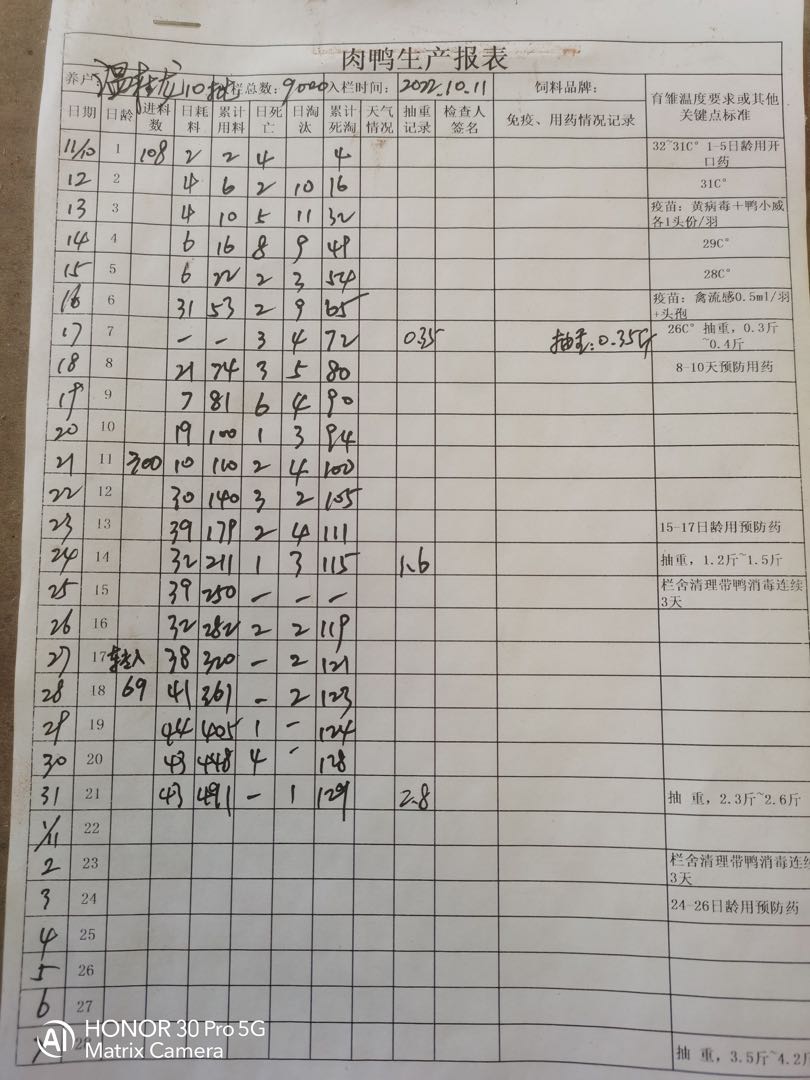 肉鸭生产报表
养户 温桂龙 10批 栏总数: 9000 入栏时间: 2022.10.11 饲料品牌: 育雏温度要求或其他关键点标准
日期 日龄 进料数 日耗料 累计用料 日死亡 日淘汰 累计死淘 天气情况 抽重记录 检查人签名 免疫、用药情况记录
11/10 1 108 2 2 4 4 32~31C° 1-5日龄用开口药
12 2 4 6 2 10 16 31C°
13 3 4 10 5 11 32 疫苗: 黄病毒+鸭小威各1头份/羽
14 4 6 16 8 9 49 29C°
15 5 6 22 2 3 54 28C°
16 6 31 53 2 9 65 疫苗: 禽流感0.5ml/羽+头孢
17 7 - - 3 4 72 0.35 抽重:0.35斤 26C° 抽重, 0.3斤~0.4斤
18 8 21 74 3 5 80 8-10天预防用药
19 9 7 81 6 4 90
20 10 19 100 1 3 94
21 11 300 10 110 2 4 100
22 12 30 140 3 2 105
23 13 39 179 2 4 111 15-17日龄用预防药
24 14 32 211 1 3 115 1.6 抽重, 1.2斤~1.5斤
25 15 39 250 - - - 栏舍清理带鸭消毒连续3天
26 16 32 282 2 2 119
27 17 38 320 - 2 121
28 18 69 41 361 - 2 123
29 19 44 405 1 - 124
30 20 43 448 4 - 128
31 21 43 491 - 1 129 2.8 抽 重, 2.3斤~2.6斤
1/11 22
2 23 栏舍清理带鸭消毒连续3天
3 24 24-26日龄用预防药
4 25
5 26
6 27
7 28 抽 重, 3.5斤~4.2斤
AI HONOR 30 Pro 5G
Matrix Camera